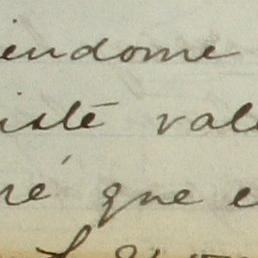 iendome
isté vale
ré, que e